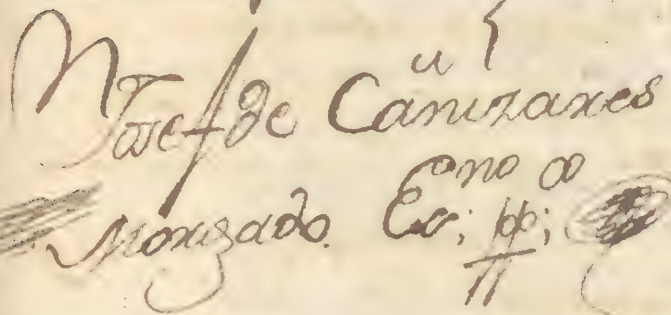 Josef de Cañizares
Morizado. Es^no pp^co;